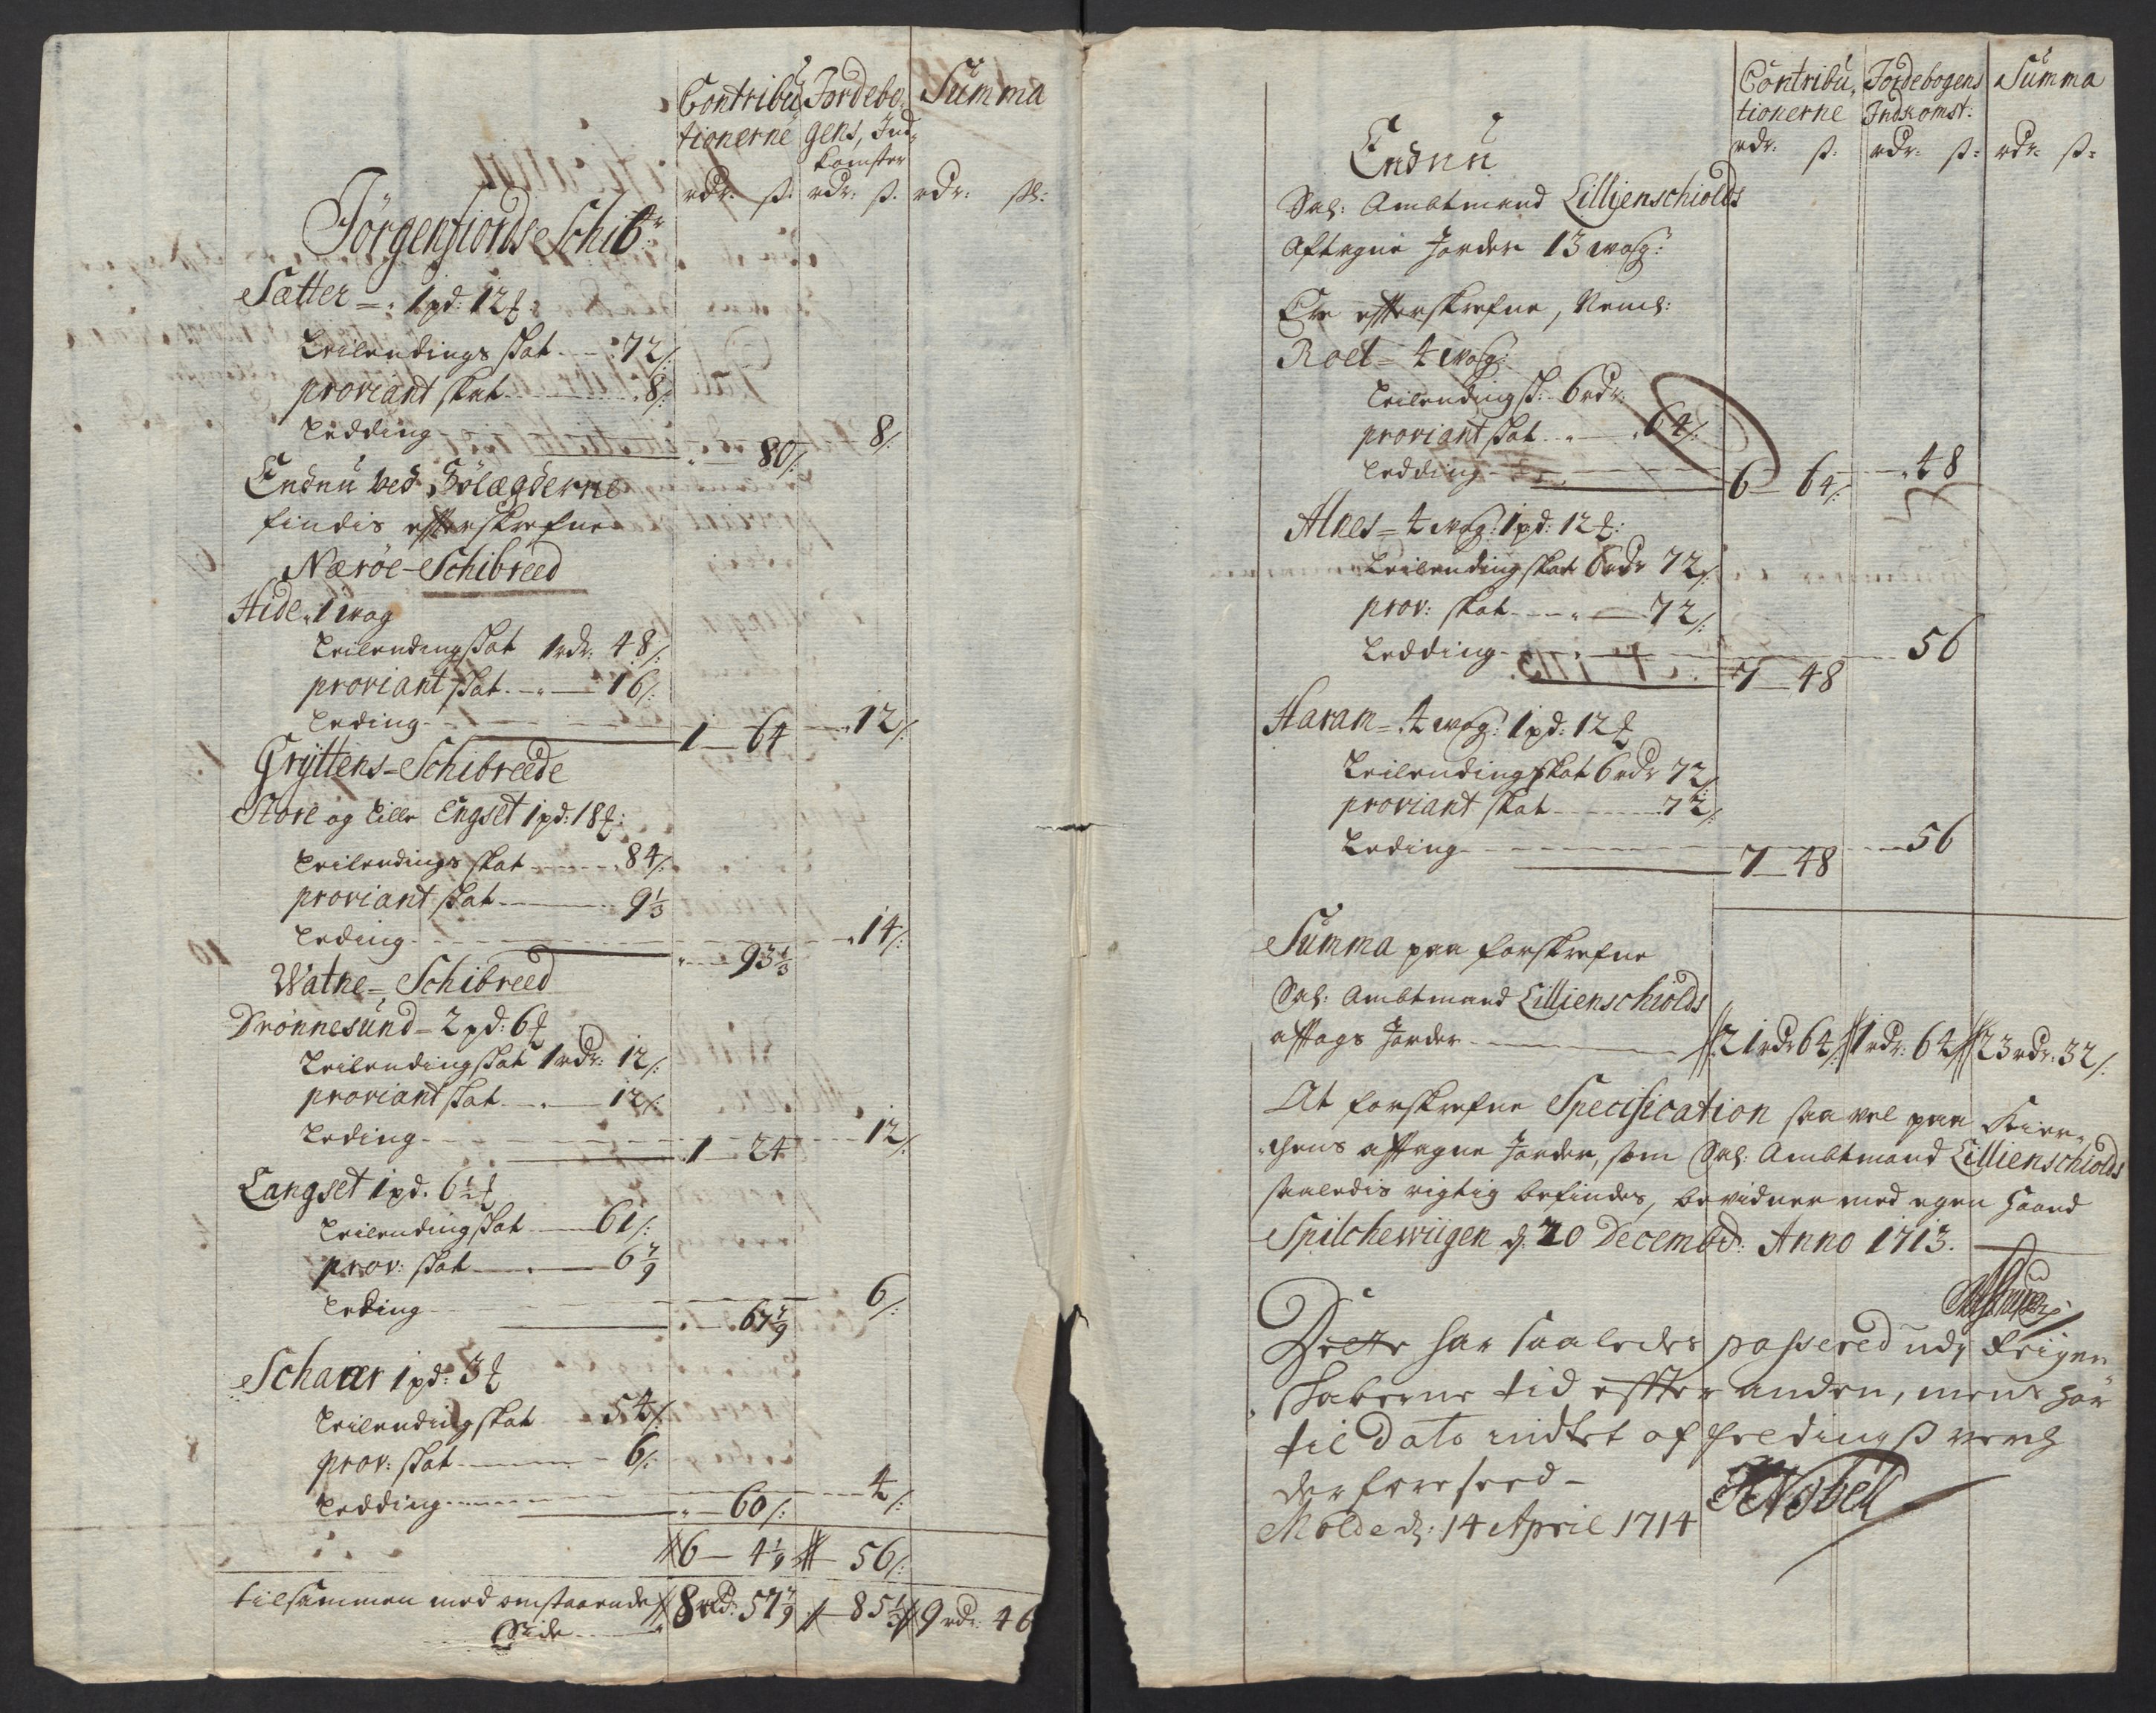 Contribu Jordebo Summa
tionerne gens, Ind
komster
rdr: ß: rdr: ß. rdr: ßl:
Jörgenfiords Schibr
Sætter = 1 pd: 12 ℔:
Leilendings skat 72/:
proviant skat 8/:
Ledding 80/: 8/:
Endnu ved Sölægderne
findis efterskrefne
Næröe-Schibreed
Hide 1 wog
Leilendingskat 1 rdr: 48/:
proviant skat 16/:
Leding 1 — 64 12/:
Gryttens-Schibreede
Store og Lille Engset 1 pd: 18 ℔:
Leilendings skat 84/:
proviant skat 9 1/3
Leding 93 1/3 14/:
Watne-Schibreed
Drönnesund - 2 pd: 6 ℔
Leilendingskat 1 rdr: 12/:
proviant skat 12/:
Leding 1 — 24 12/:
Langset 1 pd. 6 1/2 ℔
Leilendingskat 61/:
prov: skat 6 7/9
Leding 67 7/9 6/:
Schaaer 1 pd: 3 ℔
Leilendingskat 54/:
prov: skat 6/:
Ledding 60/: 4/:
6 — 4 1/9 56/:
tilsammen med omstaaende 8 rd: 57 7/9 85 1/3 9 rdr: 46
Side
Contribu Jordebogens Summa
tionerne Indkomst:
rdr: ß: rdr: ß: rdr: ß:
Endnu
Sal: Ambtmand Lillienschiolds
Aftagne Jorder 13 wog:
Ere efterskrefne, Neml:
Roel = 4 wog:
Leilendingsk: 6 rdr:
proviant skat 64/:
Ledding 6 — 64/: 48
Alnes = 4 wog: 1 pd: 12 ℔:
Leilendingskat 6 rdr 72/:
prov: skat 72/:
Ledding 7 — 48 56
Haram = 4 wog: 1 pd: 12 ℔
Leilendingskat 6 rdr 72/:
proviant skat 72/:
Leding 7 — 48 56
Summa paa forskrefne
Sal: Ambtmand Lillienschiolds
aftags Jorder 21 rdr 64/: 1 rdr: 64 23 rdr: 32/:
At forskrefne Specification saa vel paa Kier-
chens aftagne Jorder, som Sal: Ambtmand Lillienschiolds
saaledis rigtig befindes, bevidner med egen Haand
Spilchewiigen d. 20 Decembr: Anno 1713.
Dette har saaledes passered udj Reigen
skaberne tid effter anden, mens har
til dato indtet af
derfore
Molde d: 14 April 1714 Nobell